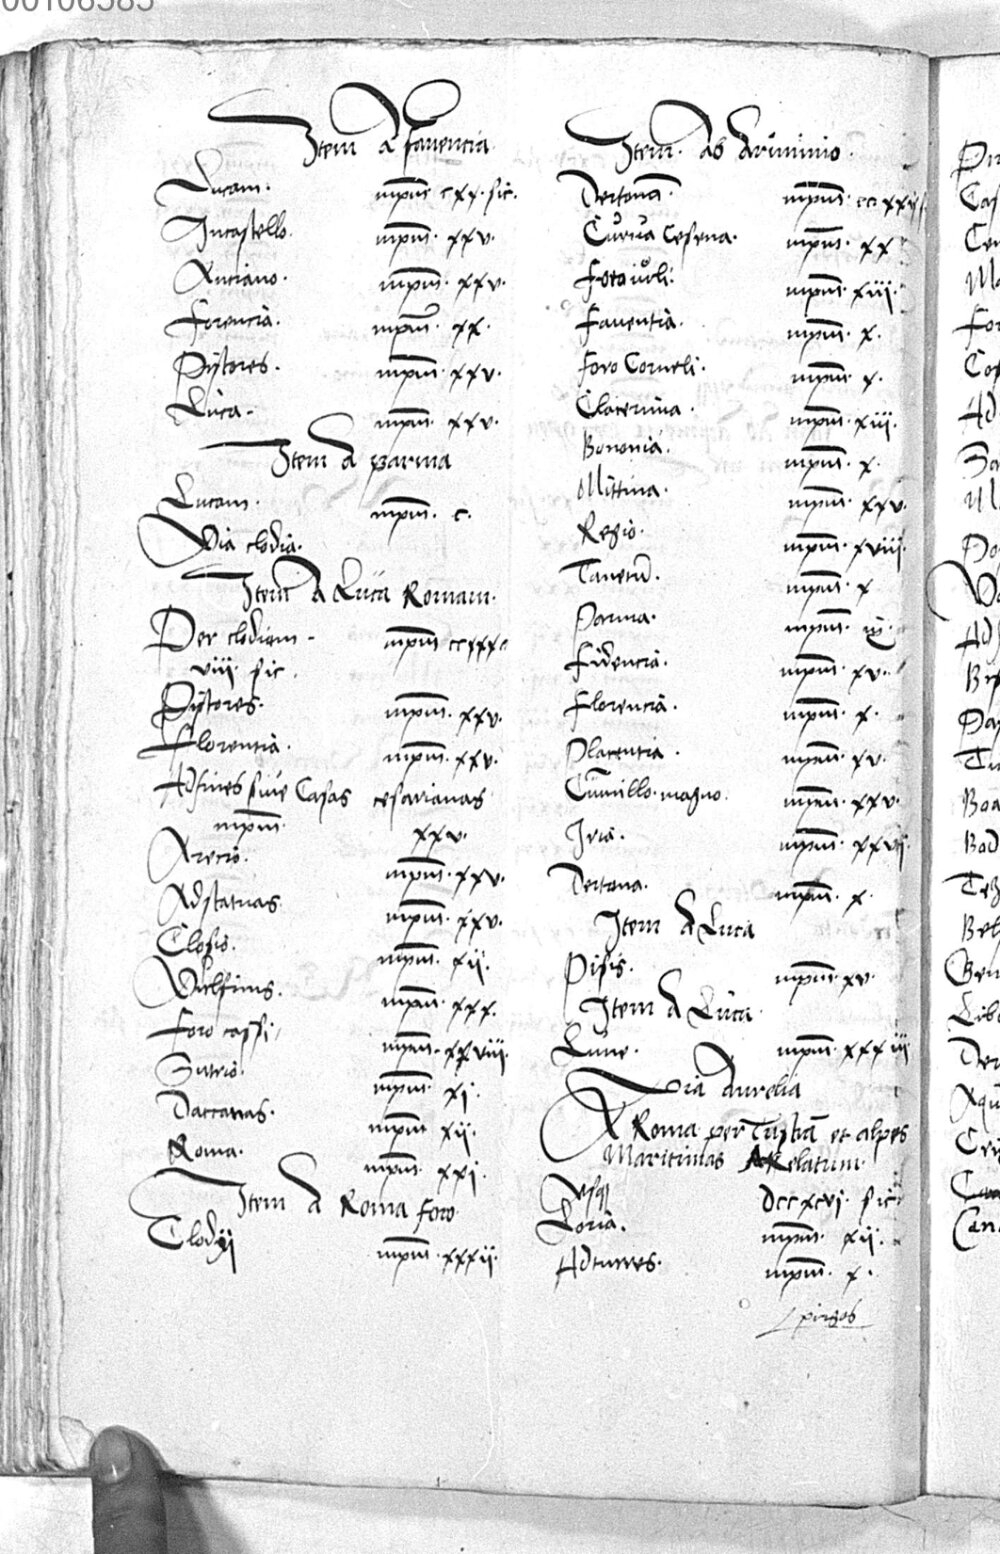 00106385
Item A faventia
Lucam. mpm. cxx. sic.
Incastello. mpm. xxv.
Anciano. mpm. xxv.
florencia. mpm. xx.
Pystores. mpm. xxv.
Luca. mpm. xxv.
Item A parma
Lucam. mpm. c.
Via clodia.
Item A Luca Romam.
Per clodiam mpm ccxxx
viii sic.
Pystores. mpm. xxv.
Florentia. mpm. xxv.
Adfines sive Casas cesarianas
mpm xxv.
Arecio. mpm. xxv.
Adstatuas mpm. xxv.
Closis. mpm. xii.
Vulfinis. mpm. xxx.
Foro cassi mpm. xxviii.
Sutrio. mpm. xi.
Baccanas. mpm xii.
Roma. mpm. xxi.
Item A Roma foro
Clodii mpm. xxxii.
Item Ab Ariminio.
Dertonam. mpm. cc xxvi
Curva Cesena. mpm. xx
foro iuli. mpm. xiii.
Faventia. mpm. x.
foro Corneli. mpm. x.
Claternna. mpm. xiii.
Bononia. mpm. x.
Mittina. mpm. xxv.
Regio. mpm. xviii.
Tanetum. mpm. x
Parma. mpm.
Fidencia. mpm. xv.
Florencia. mpm. x.
Placentia. mpm. xv.
Cumillo. magno. mpm. xxv.
Iria. mpm. xxvi.
Dertona. mpm. x.
Item A Luca
Pisis. mpm xv.
Item A Luca.
Lune. mpm. xxxiii
Via Aurelia
A Roma per Tusciam et alpes
Maritimas Arelatum.
dccxcvi. sic
Loria. mpm. xii.
Adturres. mpm. x.
pirgos